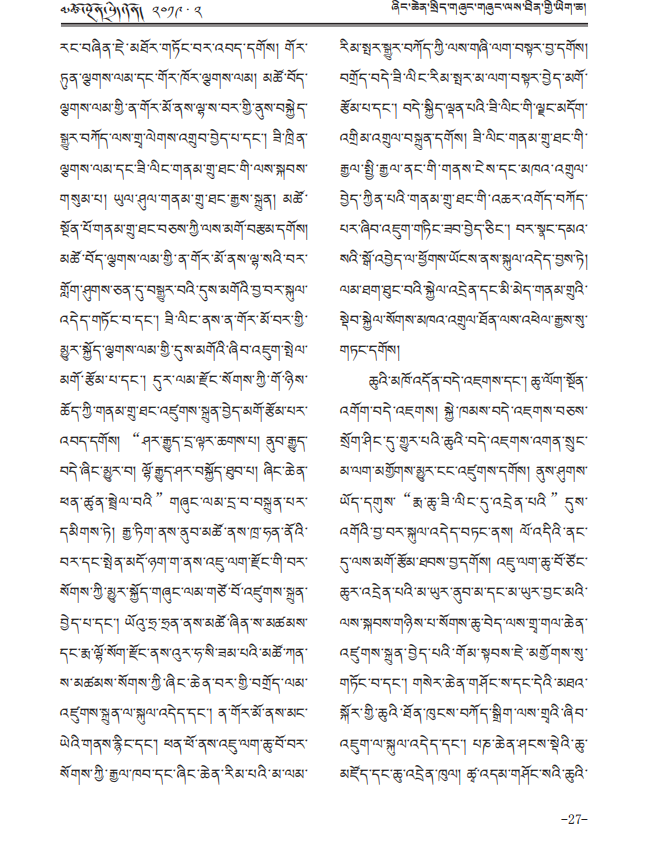 མཚོ་སྔོན་སྲིད་གཞུང་། ༢༠༡༩ · ༢
ཞིང་ཆེན་སྲིད་གཞུང་གཞུང་ལས་ཐིན་གྱི་ཡིག་ཆ།
རང་བཞིན་ཇེ་མཐོར་གཏོང་བར་འབད་དགོས། གོར་
ཏུན་ལྕགས་ལམ་དང་གོར་ཁོར་ལྕགས་ལམ། མཚོ་བོད་
ལྕགས་ལམ་གྱི་ན་གོར་མོ་ནས་ལྷ་ས་བར་གྱི་ནུས་བསྐྱེད་
སྒྱུར་བཀོད་ལས་གྲྭ་ལེགས་འགྲུབ་བྱེད་པ་དང་། ཟི་ཁྲིན་
ལྕགས་ལམ་དང་ཟི་ལིང་གནམ་གྲུ་ཐང་གི་ལས་སྐབས་
གསུམ་པ། ཡུལ་ཤུལ་གནམ་གྲུ་ཐང་རྒྱས་སྐྲུན། མཚོ་
སྔོན་པོ་གནམ་གྲུ་ཐང་བཅས་ཀྱི་ལས་མགོ་བརྩམ་དགོས།
མཚོ་བོད་ལྕགས་ལམ་གྱི་ན་གོར་མོ་ནས་ལྷ་སའི་བར་
གློག་ཤུགས་ཅན་དུ་བསྒྱུར་བའི་དུས་མགོའི་བྱ་བར་སྐུལ་
འདེད་གཏོང་བ་དང་། ཟི་ལིང་ནས་ན་གོར་མོ་བར་གྱི་
མྱུར་སྐྱོད་ལྕགས་ལམ་གྱི་དུས་མགོའི་ཞིབ་འཇུག་སྤེལ་
མགོ་རྩོམ་པ་དང་། དུར་ལམ་རྫོང་སོགས་ཀྱི་གོ་ཉིས་
ཆོད་ཀྱི་གནམ་གྲུ་ཐང་འཛུགས་སྐྲུན་བྱེད་མགོ་རྩོམ་པར་
འབད་དགོས། “ཤར་རྒྱུད་དྲ་ལྟར་ཆགས་པ། ནུབ་རྒྱུད་
བདེ་ཞིང་མྱུར་བ། ལྷོ་རྒྱུད་ཤར་བསྐྱོད་ཐུབ་པ། ཞིང་ཆེན་
ཕན་ཚུན་སྦྲེལ་བའི” གཞུང་ལམ་དྲ་བ་བསྐྲུན་པར་
དམིགས་ཏེ། རྒྱ་ཏིག་ནས་ནུབ་མཚོ་ནས་ཁྲ་ཧན་ནོའི་
བར་དང་སྤེན་མདོ་ཉག་ག་ནས་འཇུ་ལག་རྫོང་གི་བར་
སོགས་ཀྱི་མྱུར་སྐྱོད་གཞུང་ལམ་གཙོ་བོ་འཛུགས་སྐྲུན་
བྱེད་པ་དང་། ཡོའུ་ཧྲ་ཧྲན་ནས་མཚོ་ཞིན་ས་མཚམས་
དང་རྨ་ལྷོ་སོག་རྫོང་ནས་འུར་ཧ་སི་ཟམ་པའི་མཚོ་ཀན་
ས་མཚམས་སོགས་ཀྱི་ཞིང་ཆེན་བར་གྱི་བགྲོད་ལམ་
འཛུགས་སྐྲུན་ལ་སྐུལ་འདེད་དང་། ན་གོར་མོ་ནས་མང་
ཡེའི་གནས་རྙིང་དང་། ཕན་ཕོ་ནས་འཇུ་ལག་ཆུ་བོ་བར་
སོགས་ཀྱི་རྒྱལ་ཁབ་དང་ཞིང་ཆེན་རིམ་པའི་མ་ལམ་
རིམ་སྤར་སྒྱུར་བཀོད་ཀྱི་ལས་གཞི་ལག་བསྟར་བྱ་དགོས།
བགྲོད་བདེ་ཟི་ལིང་རིམ་སྤར་མ་ལག་བསྟར་བྱེད་མགོ་
རྩོམ་པ་དང་། བདེ་སྐྱིད་ལྡན་པའི་ཟི་ལིང་གི་ལྗང་མདོག་
འགྲིམ་འགྲུལ་བསྐྲུན་དགོས། ཟི་ལིང་གནམ་གྲུ་ཐང་གི་
རྒྱལ་སྤྱི་རྒྱལ་ནང་གི་གནས་ངེས་དང་མཁའ་འགྲུལ་
བྱེད་ཀྱིན་པའི་གནམ་གྲུ་ཐང་གི་འཆར་འགོད་བཀོད་
པར་ཞིབ་འཇུག་གཏིང་ཟབ་བྱེད་ཅིང་། བར་སྣང་དམའ་
སའི་སྒོ་འབྱེད་ལ་ཕྱོགས་ཡོངས་ནས་སྐུལ་འདེད་བྱས་ཏེ།
ལམ་ཐག་ཐུང་བའི་སྐྱེལ་འདྲེན་དང་མི་མེད་གནམ་གྲུའི་
སྡེབ་སྐྱེལ་སོགས་མཁའ་འགྲུལ་ཐོན་ལས་འཕེལ་རྒྱས་སུ་
གཏང་དགོས།
ཆུའི་མཁོ་འདོན་བདེ་འཇགས་དང་། ཆུ་ལོག་སྔོན་
འགོག་བདེ་འཇགས། སྐྱེ་ཁམས་བདེ་འཇགས་བཅས་
སྲོག་ཤིང་དུ་གྱུར་པའི་ཆུའི་བདེ་འཇགས་འགན་སྲུང་
མ་ལག་མགྱོགས་མྱུར་ངང་འཛུགས་དགོས། ནུས་ཤུགས་
ཡོད་དགུས་“རྨ་ཆུ་ཟི་ལིང་དུ་འདྲེན་པའི”དུས་
འགོའི་བྱ་བར་སྐུལ་འདེད་བཏང་ནས། ལོ་འདིའི་ནང་
དུ་ལས་མགོ་རྩོམ་ཐབས་བྱ་དགོས། འཇུ་ལག་ཆུ་བོ་ཙོང་
ཆུར་འདྲེན་པའི་མ་ཡུར་ནུབ་མ་དང་མ་ཡུར་བྱང་མའི་
ལས་སྐབས་གཉིས་པ་སོགས་ཆུ་བེད་ལས་གྲྭ་གལ་ཆེན་
འཛུགས་སྐྲུན་བྱེད་པའི་གོམ་སྟབས་ཇེ་མགྱོགས་སུ་
གཏོང་བ་དང་། གསེར་ཆེན་གཤོང་ས་དང་དེའི་མཐའ་
སྐོར་གྱི་ཆུའི་ཐོན་ཁུངས་བཀོད་སྒྲིག་ལས་གྲྭའི་ཞིབ་
འཇུག་ལ་སྐུལ་འདེད་དང་། པཎ་ཆེན་ཤངས་སྡེའི་ཆུ་
མཛོད་དང་ཆུ་འདྲེན་ཁུལ། ཚྭ་འདམ་གཤོང་སའི་ཆུའི་
–27–